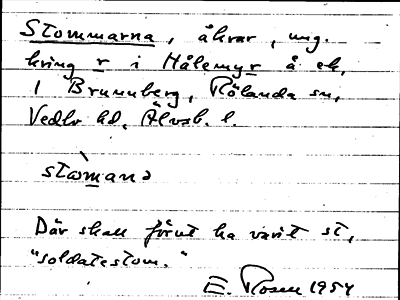 Stommarna, åkrar, ung.
kring r i Hålemyr å ek,
1 Brunnberg, Rölanda sn,
Vedbo hd, Älvsb. l.
Där skall förut ha varit st,
"soldatestom."
E. Rosen 1954